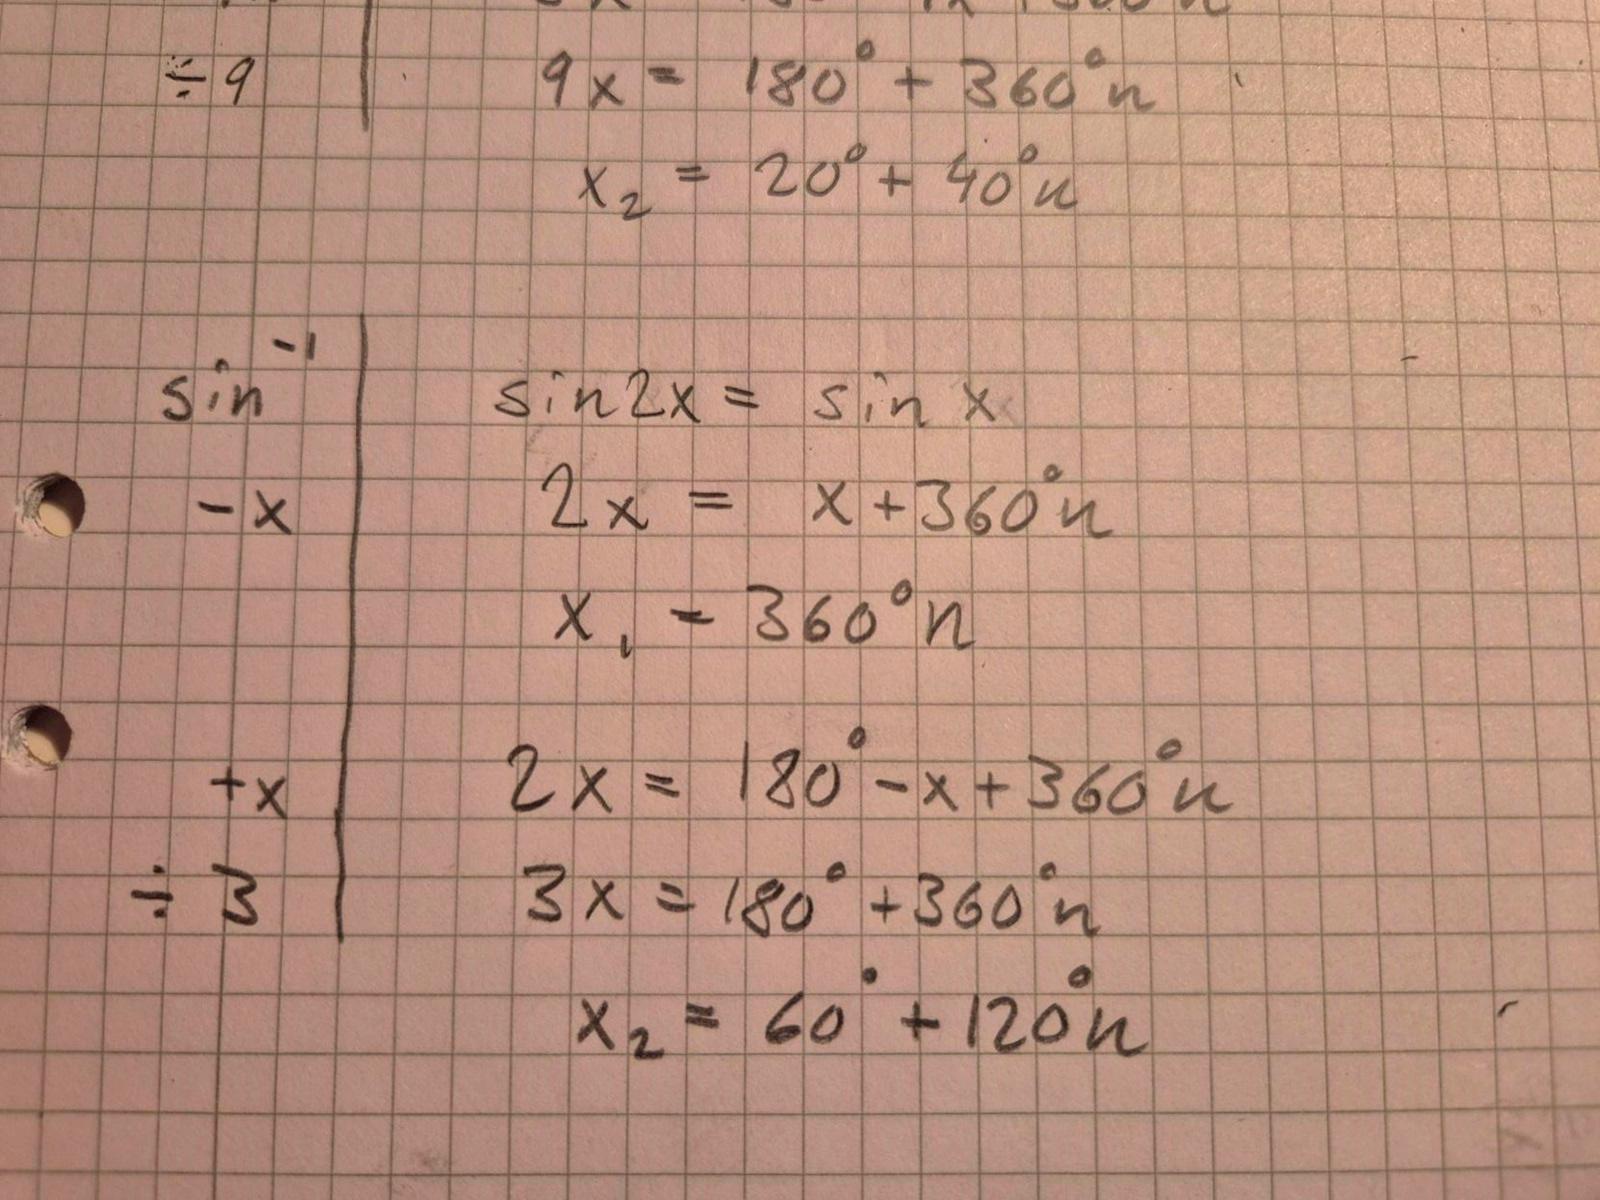 ÷9 | 9x = 180° + 360°n
x₂ = 20° + 40°n
sin⁻¹ | sin2x = sin x
-x | 2x = x + 360°n
x₁ = 360°n
+x | 2x = 180° - x + 360°n
÷ 3 | 3x = 180° + 360°n
x₂ = 60° + 120°n